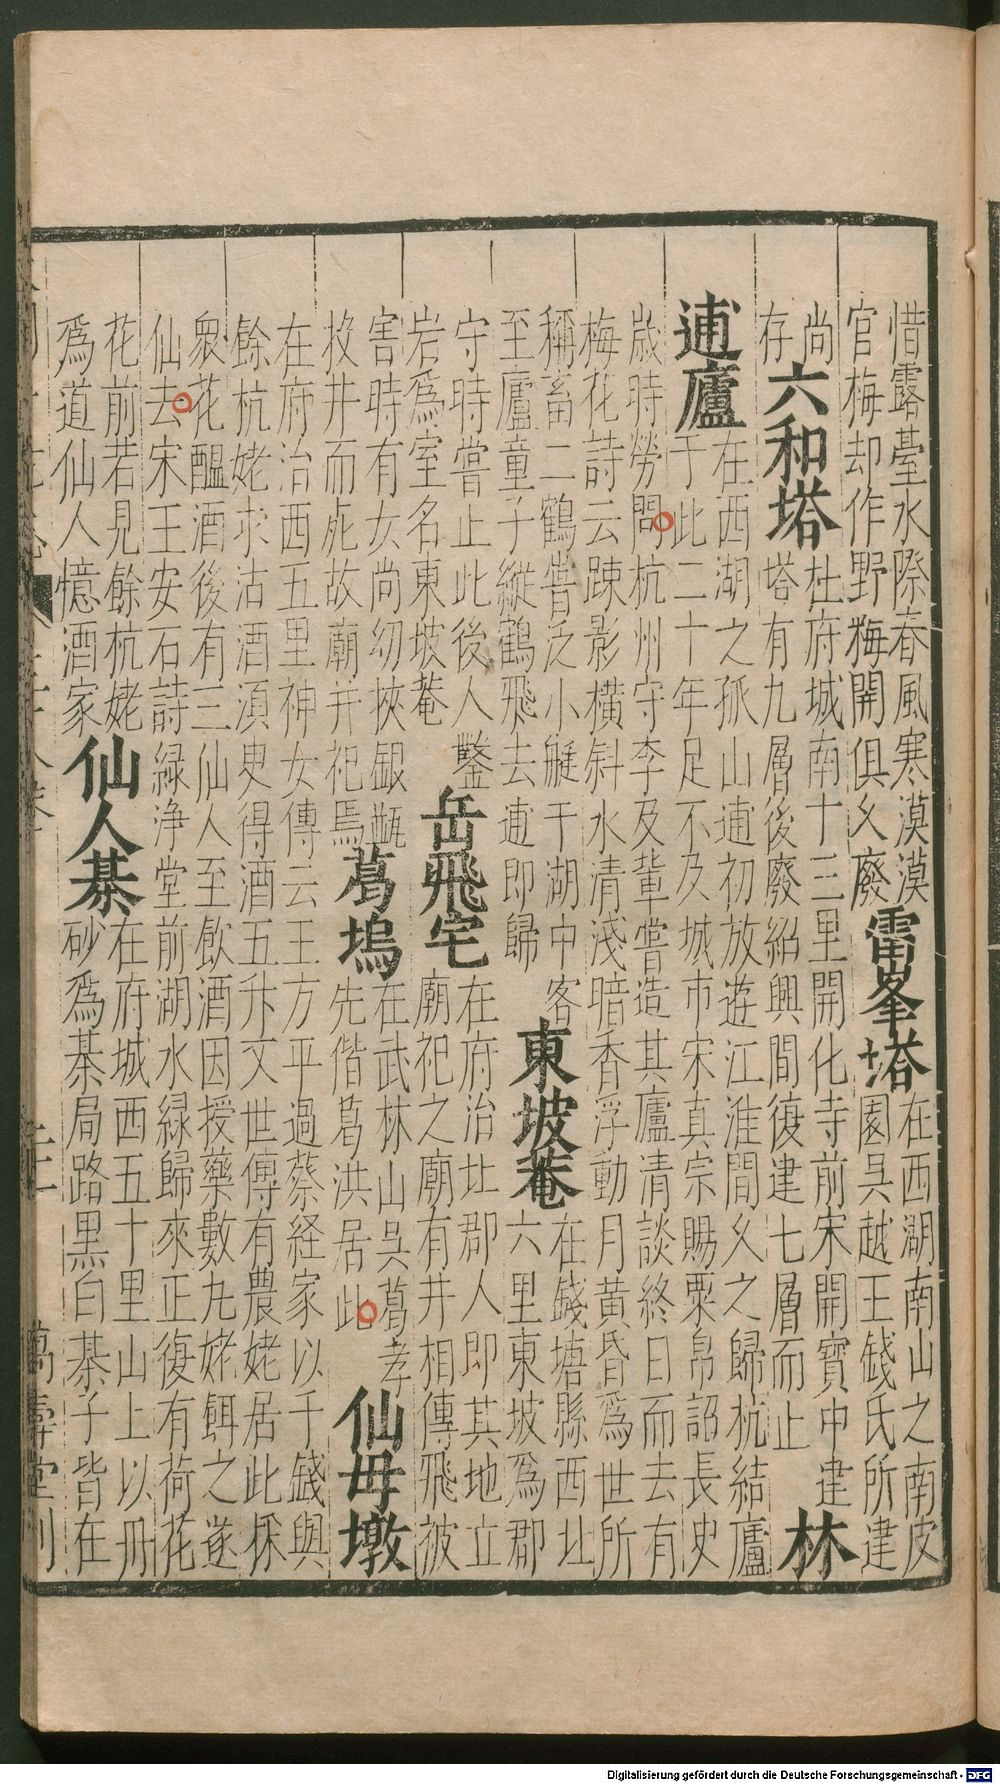 惜露臺水際春風寒漠漠
官梅却作野梅開俱乆廢
雷峯塔
在西湖南山之南皮
園呉越王錢氏所建
尚
存
六和塔
在府城南十三里開化寺前宋開寳中建
塔有九層後廢紹興間復建七層而止
林
逋廬
在西湖之孤山逋初放遊江淮間乆之歸杭結廬
于此二十年足不及城市宋真宗賜粟帛詔長史
歳時勞問杭州守李及軰嘗造其廬清談終日而去有
梅花詩云踈影橫斜水清淺暗香浮動月黄昏爲世所
稱畜二鶴甞泛小艇干湖中客
至廬童子縱鶴飛去逋即歸
東坡菴
在錢塘縣西北
六里東坡爲郡
守時嘗止此後人鑿
岩爲室名東坡菴
岳飛宅
在府治北郡人即其地立
廟祀之廟有井相傳飛被
害時有女尚㓜挾銀瓶
投井而死故廟并祀焉
葛塢
在武林山呉葛孝
先偕葛洪居此
仙母墩
在府治西五里神女傳云王方平過蔡経家以千錢與
餘杭姥求沽酒湏臾得酒五升文世傳有農姥居此採
衆花醖酒後有三仙人至飲酒因授藥數丸姥餌之遂
仙去宋王安石詩緑浄堂前湖水緑歸來正復有荷花
花前若見餘杭姥
爲道仙人憶酒家
仙人棊
在府城西五十里山上以丹
砂爲棊局路黒白棊子皆在
萬壽堂刋
Digitalisierung gefördert durch die Deutsche Forschungsgemeinschaft - DFG